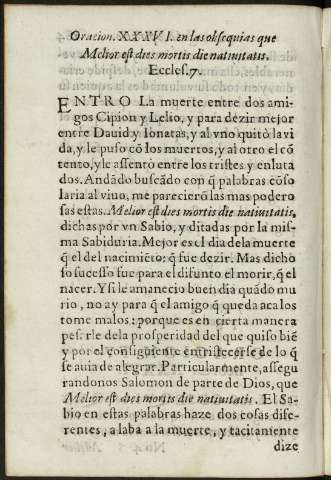 Oracion. XXXVI. en las obsequias que
Melior est dies mortis die natiuitatis.
Eccles. 7.
ENTRO La muerte entre dos ami-
gos Cipion y Lelio, y para dezir mejor
entre Dauid y Ionatas, y al vno quitò la vi
da, y le puso cõ los muertos, y al otro el cõ
tento, y le assentò entre los tristes y enluta
dos. Andãdo buscãdo con q̃ palabras cõso
laria al viuo, me parecierõ las mas podero
sas estas. Melior est dies mortis die natiuitatis,
dichas por vn Sabio, y ditadas por la mis-
ma Sabiduria. Mejor es el dia de la muerte
q̃ el del nacimiẽto: q̃ fue dezir. Mas dicho
so sucesso fue para el difunto el morir, q̃ el
nacer. Y si le amanecio buen dia quãdo mu
rio, no ay para q̃ el amigo q̃ queda aca los
tome malos: porque es en cierta manera
pesarle de la prosperidad del que quiso biẽ
y por el consiguiente entristecerse de lo q̃
se auia de alegrar. Particularmente, assegu
randonos Salomon de parte de Dios, que
Melior est dies mortis die natiuitatis. El Sa-
bio en estas palabras haze dos cosas dife-
rentes, alaba a la muerte, y tacitamente
dize